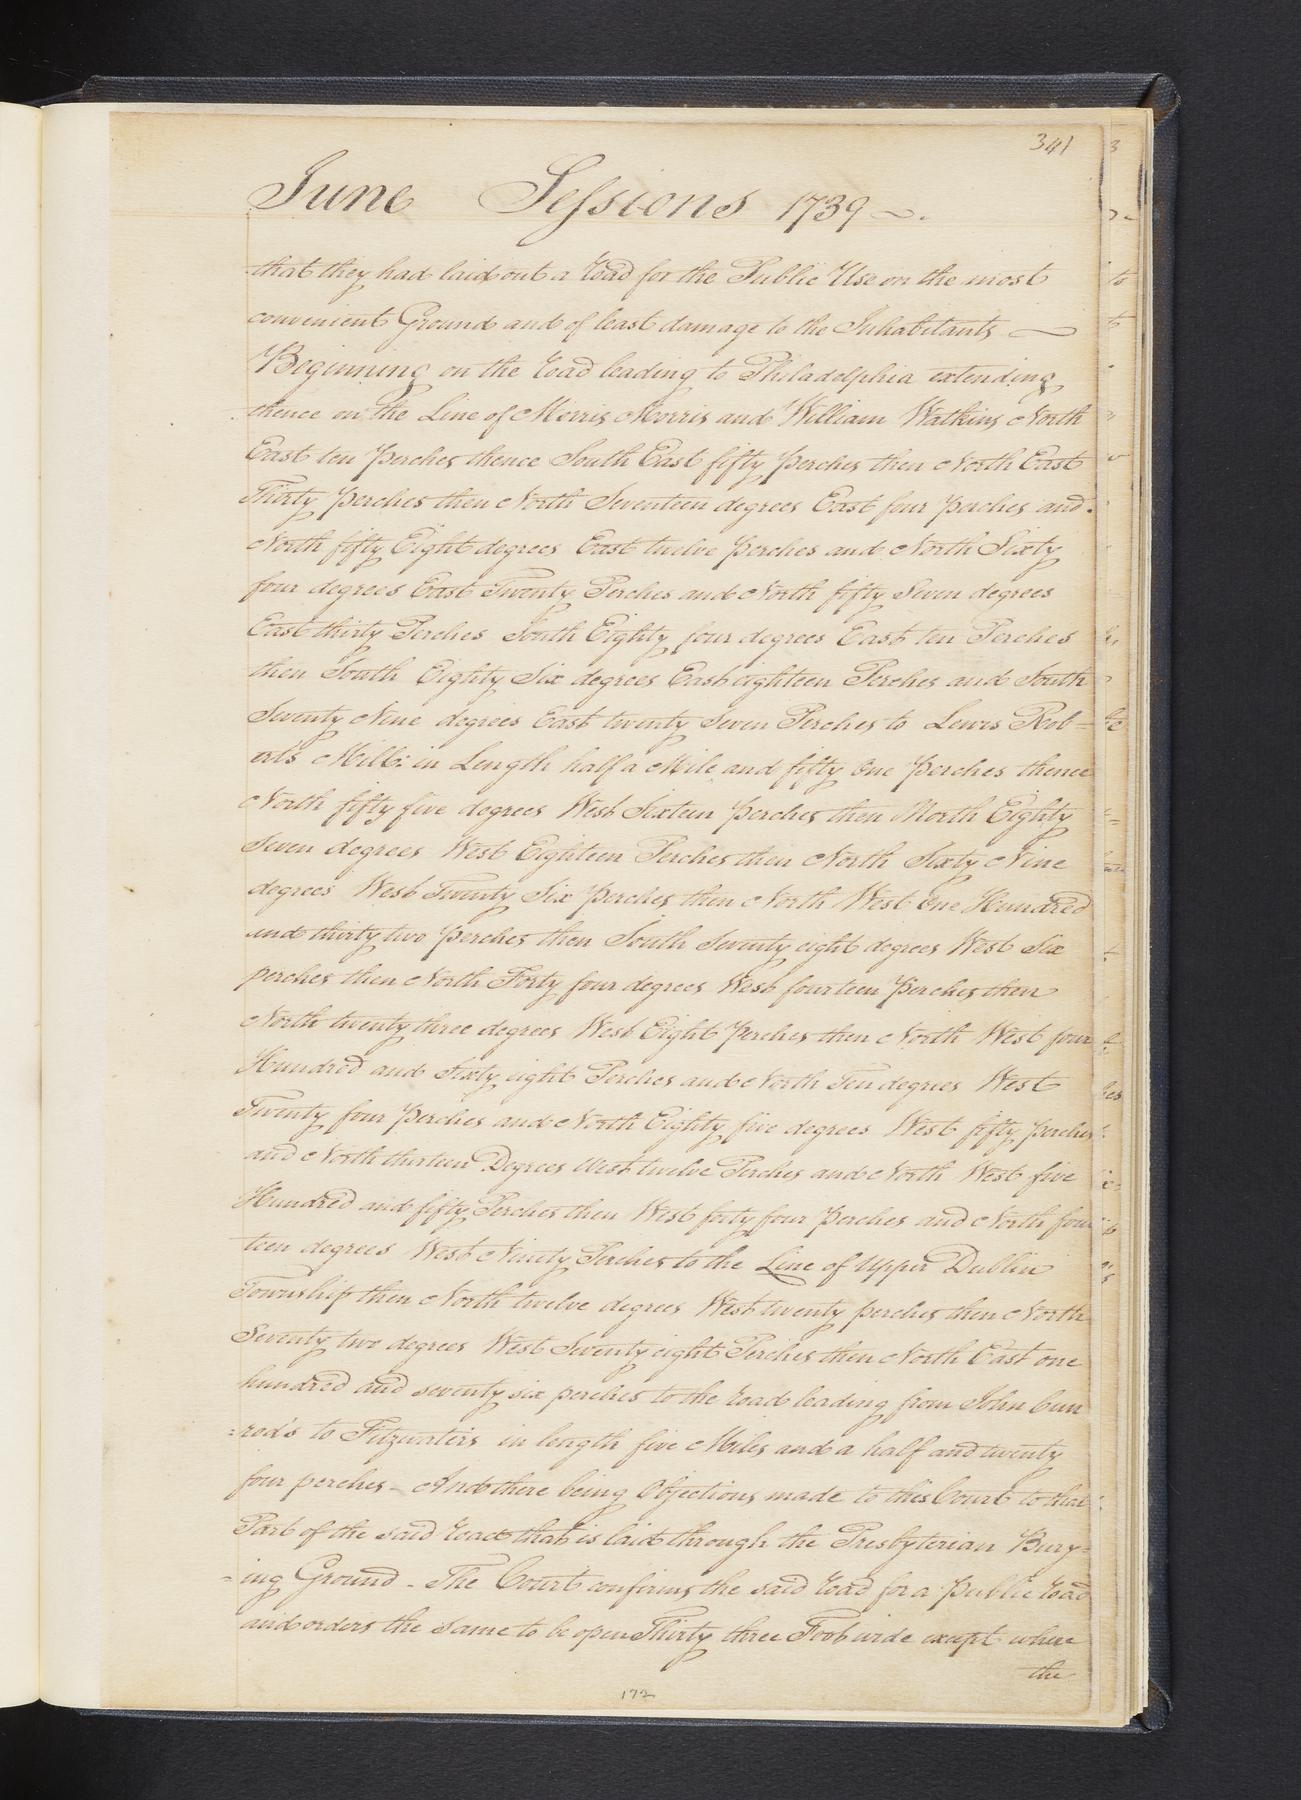 341
June Sessions 1739
that they had laid out a Road for the Public Use on the most
convenient Ground and of least damage to the Inhabitants
Beginning on the Road leading to Philadelphia extending
thence on the Line of Morris Morris and William Watkins North
East ten Perches thence South East fifty Perches then North East
Thirty Perches then North Seventeen degrees East four Perches and
North fifty Eight degrees East twelve Perches and North Sixty
four degrees East Twenty Perches and North fifty Seven degrees
East thirty Perches South Eighty four degrees East ten Perches
then South Eighty Six degrees East eighteen Perches and South
Seventy Nine degrees East twenty Seven Perches to Lewis Rob-
erts Mill: in Length half a Mile and fifty One Perches thence
North fifty five degrees West Sixteen Perches then North Eighty
Seven degrees West Eighteen Perches then North Sixty Nine
degrees West Twenty Six Perches then North West One Hundred
and thirty two Perches then South Seventy eight degrees West Six
perches then North Forty four degrees West fourteen Perches then
North twenty three degrees West Eight Perches then North West four
Hundred and Sixty eight Perches and North Ten degrees West
Twenty four Perches and North Eighty five degrees West fifty perches
and North thirteen Degrees West twelve Perches and North West five
Hundred and fifty Perches then West forty four Perches and North four
teen degrees West Ninety Perches to the Line of Upper Dublin
Township then North twelve degrees West twenty perches then North
Seventy two degrees West Seventy eight Perches then North East one
hundred and seventy six perches to the Road leading from John Cun
=red's to Fitzwaters in length five Miles and a half and twenty
four perches - And there being Objections made to this Court to that
Part of the said Road that is laid through the Presbyterian Bury=
=ing Ground - The Court confirms the said Road for a Public Road
and orders the Same to be open Thirty three Foot wide except where
the
172